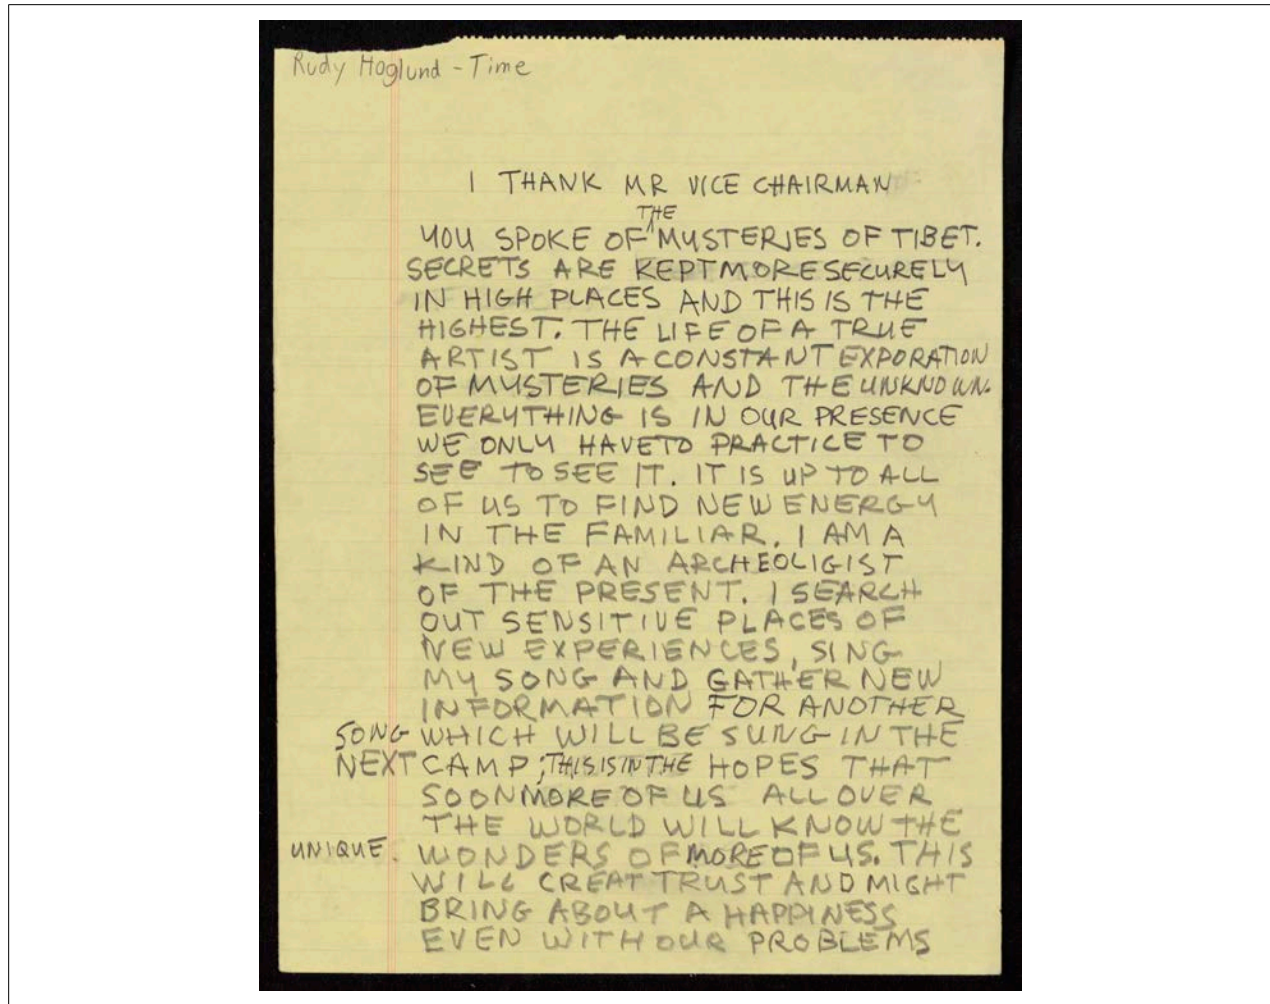 Rudy Hoglund - Time
I THANK MR VICE CHAIRMAN
THE
YOU SPOKE OF MYSTERIES OF TIBET.
SECRETS ARE KEPT MORE SECURELY
IN HIGH PLACES AND THIS IS THE
HIGHEST. THE LIFE OF A TRUE
ARTIST IS A CONSTANT EXPORATION
OF MYSTERIES AND THE UNKNOWN.
EVERYTHING IS IN OUR PRESENCE
WE ONLY HAVE TO PRACTICE TO
SEE TO SEE IT. IT IS UP TO ALL
OF US TO FIND NEW ENERGY
IN THE FAMILIAR. I AM A
KIND OF AN ARCHEOLIGIST
OF THE PRESENT. I SEARCH
OUT SENSITIVE PLACES OF
NEW EXPERIENCES, SING
MY SONG AND GATHER NEW
INFORMATION FOR ANOTHER
SONG WHICH WILL BE SUNG IN THE
NEXT CAMP; THIS IS IN THE HOPES THAT
SOON MORE OF US ALL OVER
THE WORLD WILL KNOW THE
UNIQUE. WONDERS OF MORE OF US. THIS
WILL CREAT TRUST AND MIGHT
BRING ABOUT A HAPPINESS
EVEN WITH OUR PROBLEMS